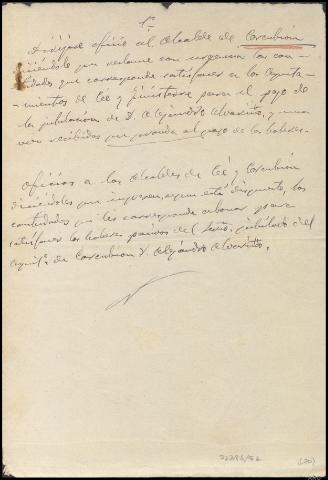 1º
Diríjase oficio al Alcalde de Corcubión
diciéndole que reclame con urgencia las can-
tidades que corresponde satisfacer a los Ayunta-
mientos de Cée y Finisterre para el pago de
la jubilación de D. Alejandro Alvariño, y una
vez recibidas que proceda al pago de los haberes.
Oficios a los Alcaldes de Cée y Corcubión
diciéndoles que ingresen, según está dispuesto, las
cantidades que les corresponde abonar para
satisfacer los haberes pasivos del Secrio. jubilado del
Ayunto. de Corcubión D. Alejandro Alvariño.